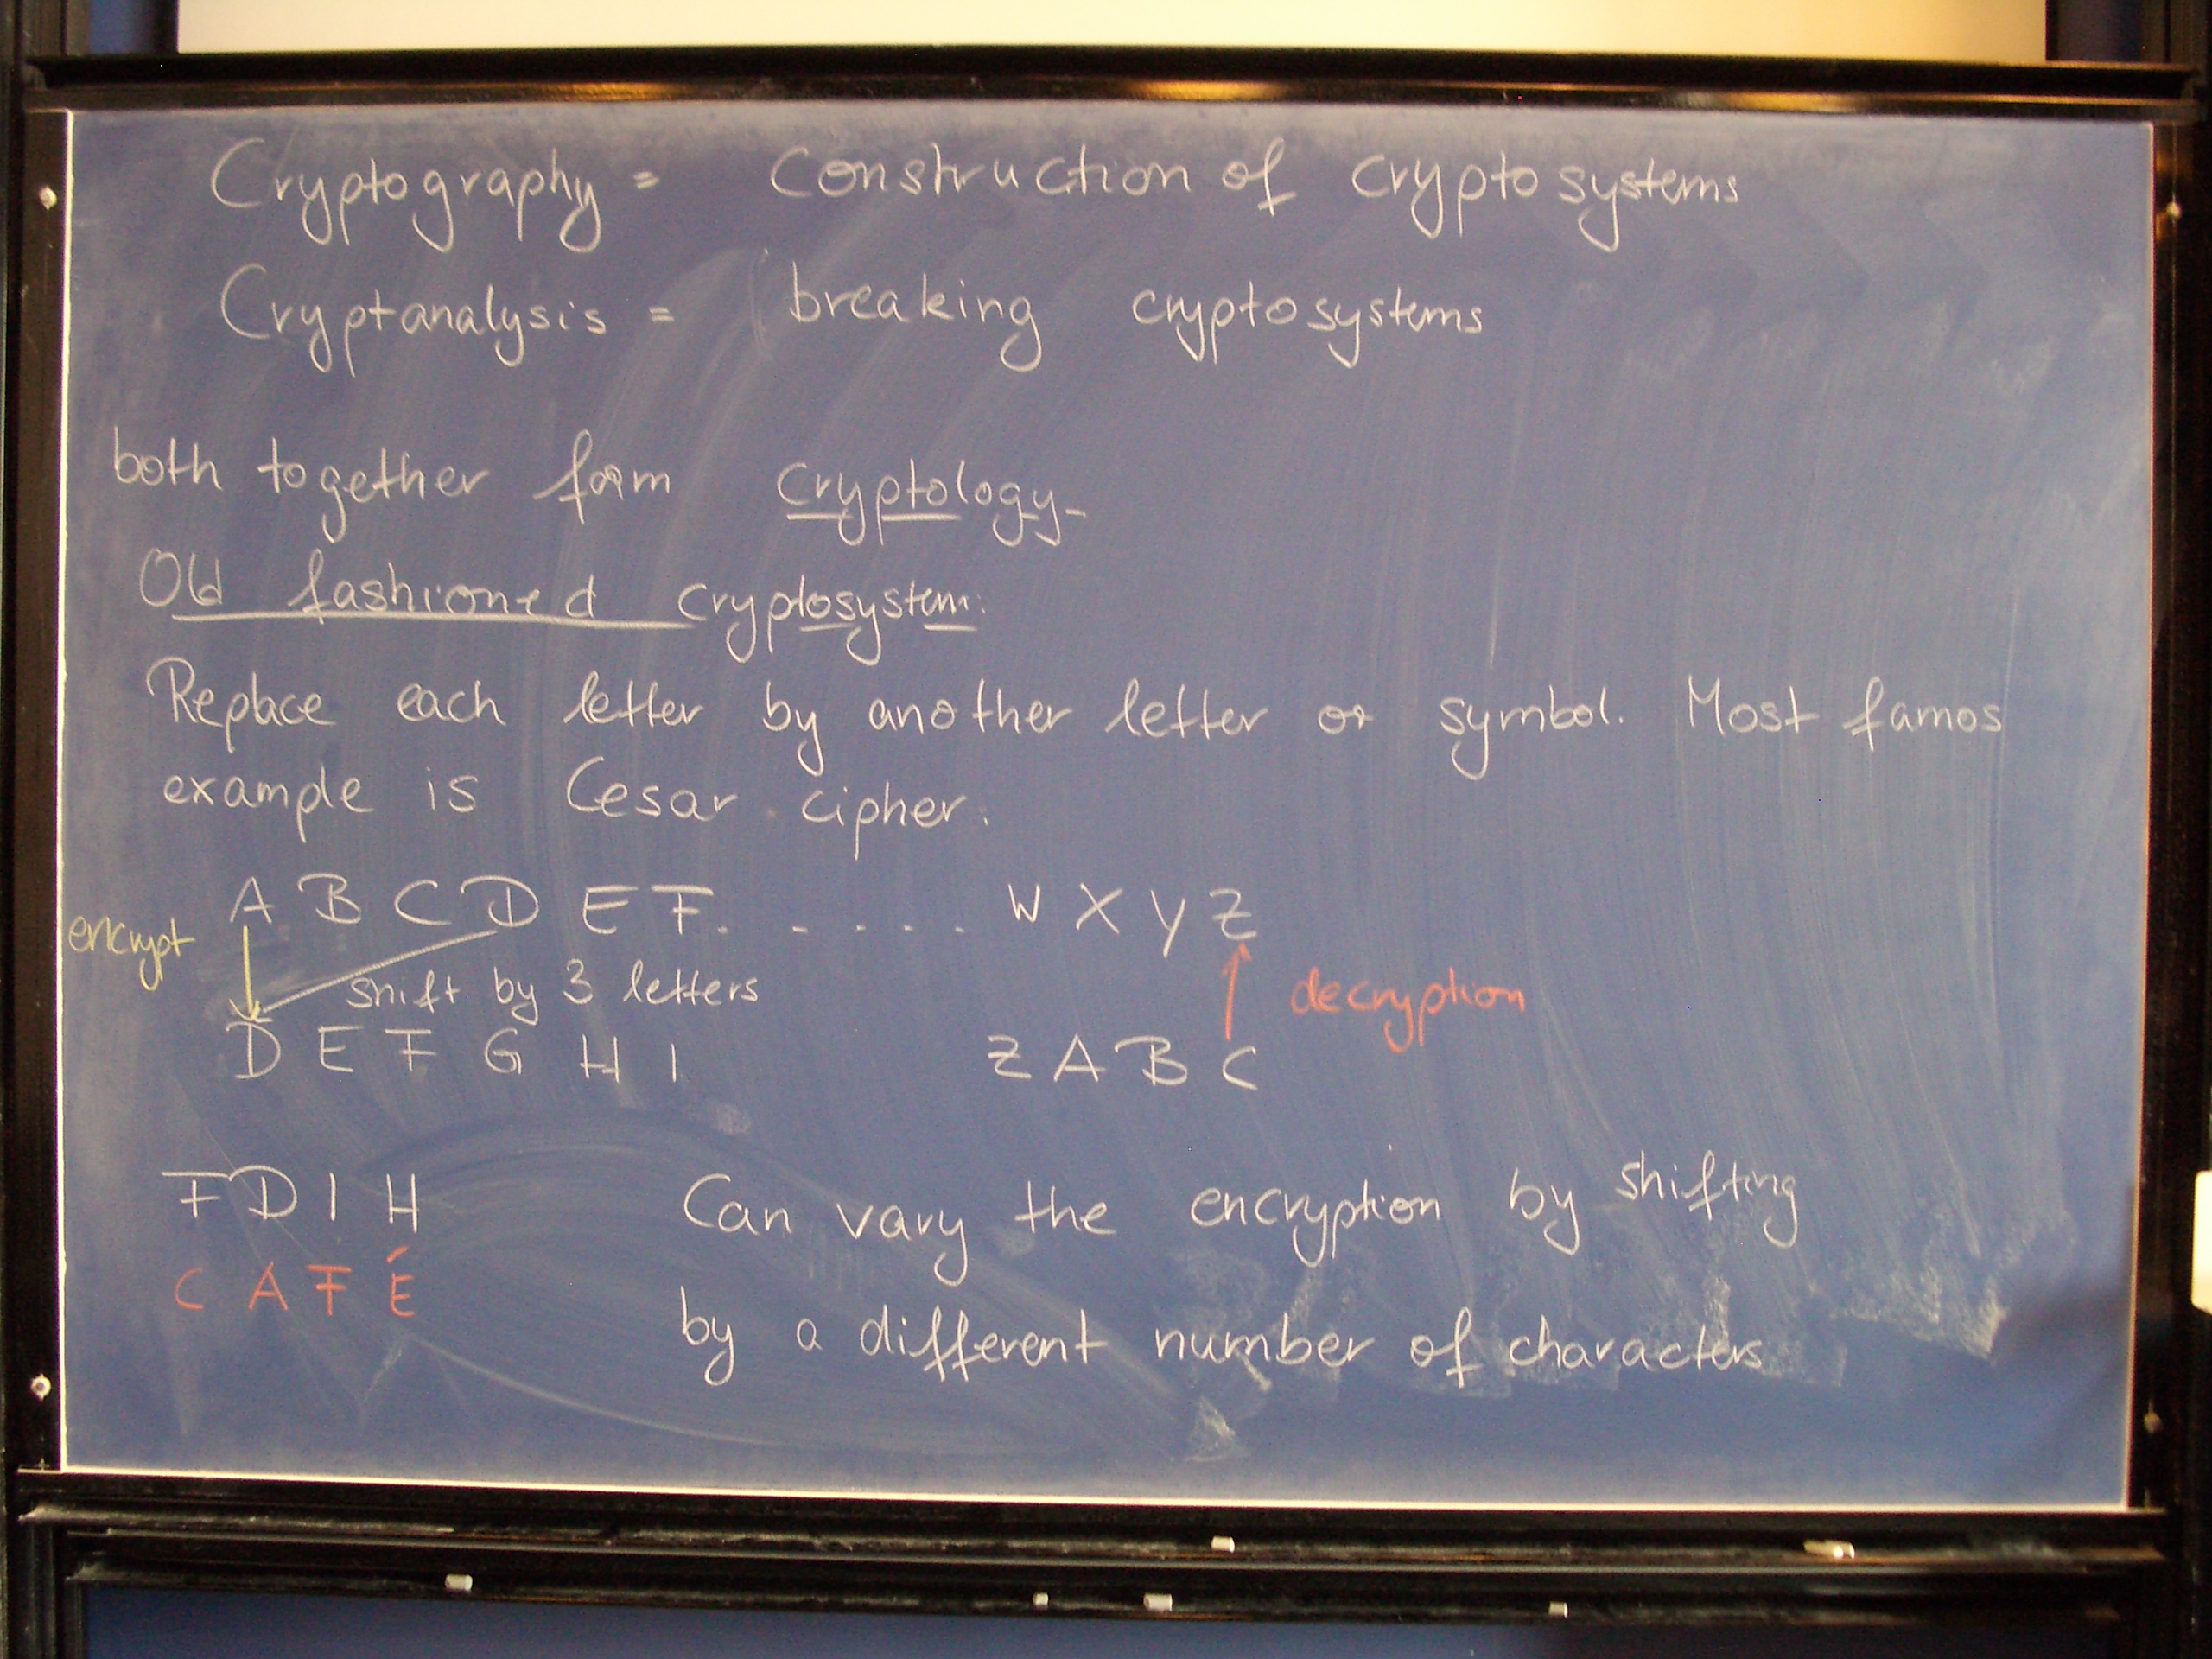 Cryptography = Construction of Cryptosystems
Cryptanalysis = breaking cryptosystems
both together form cryptology.
Old fashioned cryptosystem:
Replace each letter by another letter or symbol. Most famos
example is Cesar cipher:
A B C D E F . . . . . . W X Y Z
encrypt
shift by 3 letters
decryption
D E F G H I Z A B C
F D I H
C A F É
Can vary the encryption by shifting
by a different number of characters